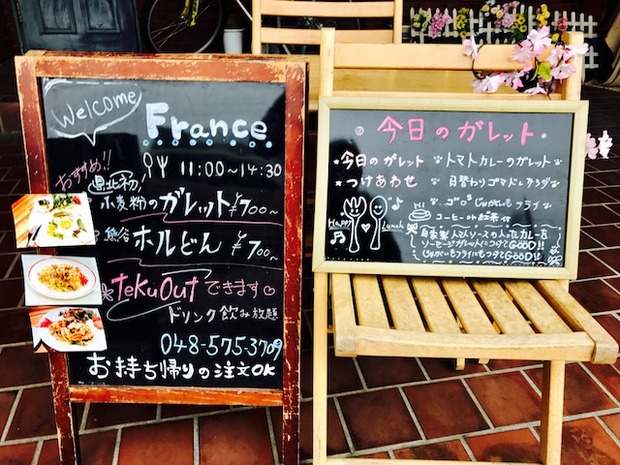 Welcome
France
11:00〜14:30
おすすめ!!
県北初!
小麦粉のガレット ¥700〜
熊谷 ホルどん ¥700〜
tekuOutできます
ドリンク飲み放題
048-575-3709
お持ち帰りの注文OK
今日のガレット
今日のガレット トマトカレーのガレット
つけあわせ 日替わりゴマドレサラダ
じゃがいもフライ
コーヒーor紅茶付
Happy Lunch
自家製トマトソースの入ったカレーを
ソーセージガレットにつけてGOOD!!
じゃがいもフライにもつけてGOOD!!